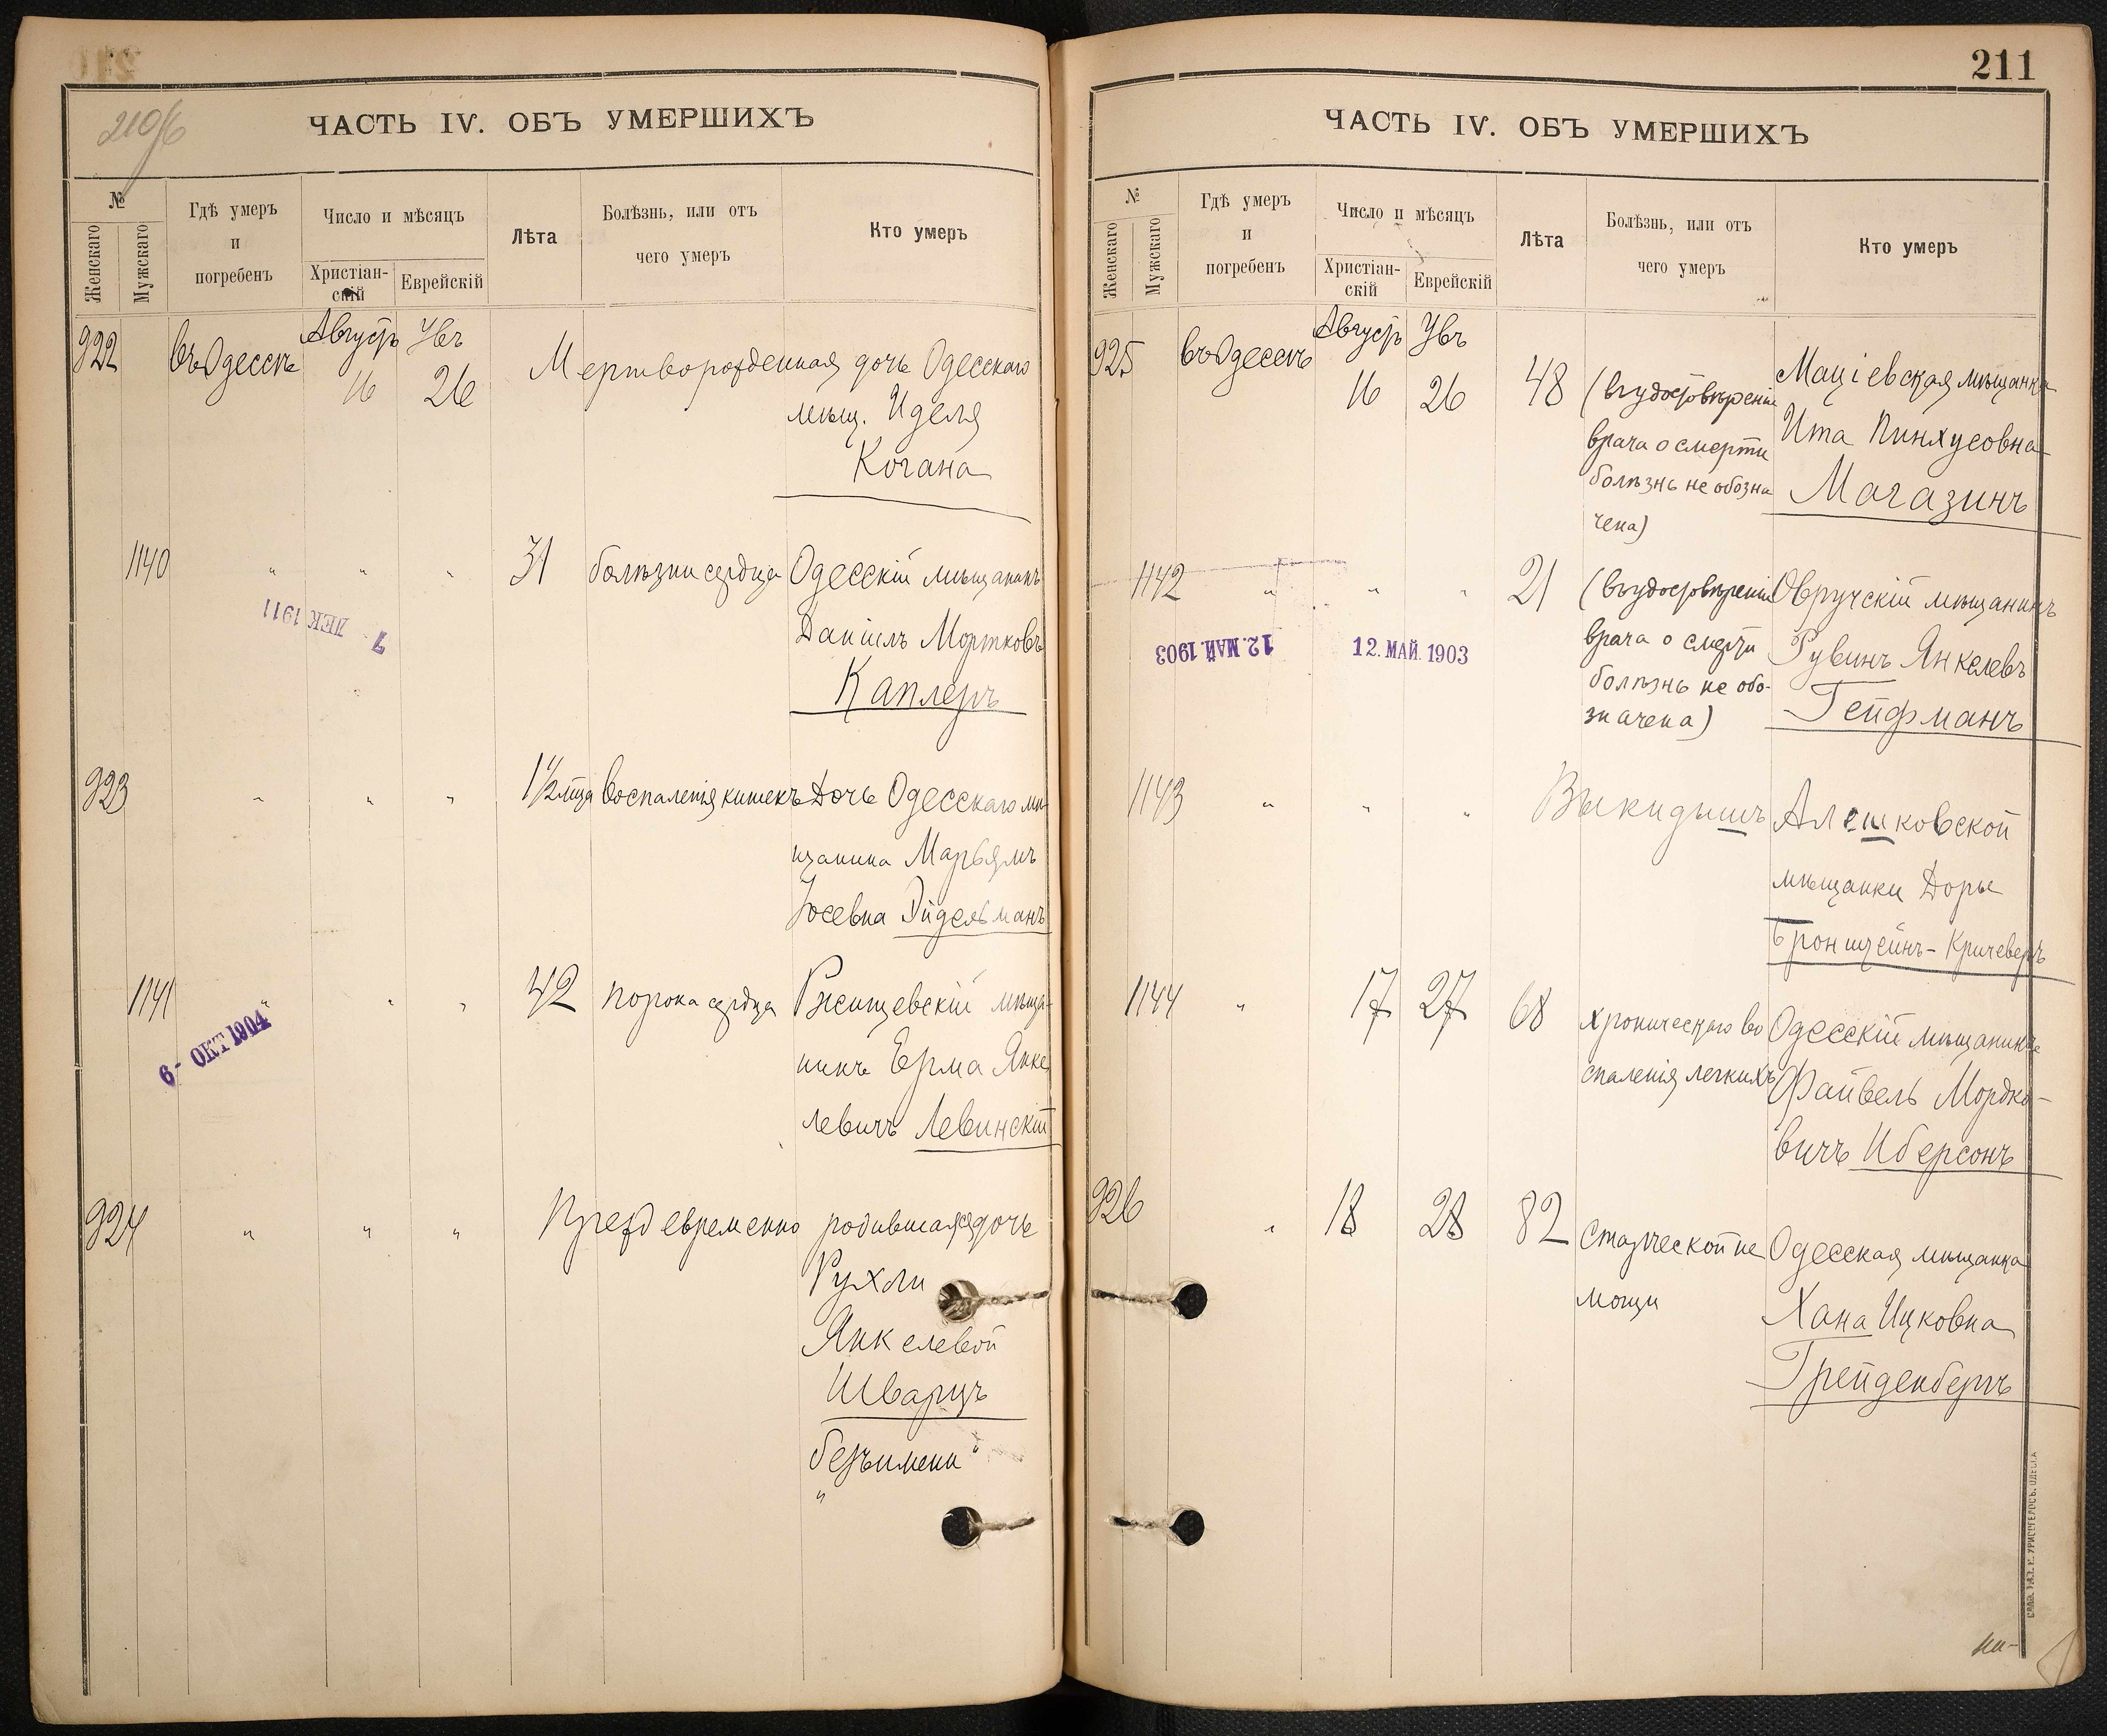 210/б
ЧАСТЬ IV. ОБЪ УМЕРШИХЪ
№
Женскаго
Мужскаго
Гдѣ умеръ
и
погребенъ
Число и мѣсяцъ
Христіан-
скій
Еврейскій
Лѣта
Болѣзнь, или отъ
чего умеръ
Кто умеръ
922 въ Одессѣ Августъ 16 26 Мертворожденная дочь Одесскаго
мѣщ. Иделя
Когана
1140 " " " 31 болѣзни сердца Одесскій мѣщанинъ
Даніилъ Мортковъ
Каплеръ
7 ДЕК 1911
923 " " " 1½ мѣца воспаленія кишекъ Дочь Одесскаго мѣ-
щанина Марьямъ
Іосевна Эйдельманъ
1141 " " " 42 порока сердца Ржищевскій мѣща-
нинъ Ерма Янке
левичъ Левинскій
6- ОКТ 1904
924 " " " Преждевременно родившаяся дочь
Рухли
Янкелевой
Шварцъ
безъ имени "
"
211
ЧАСТЬ IV. ОБЪ УМЕРШИХЪ
№
Женскаго
Мужскаго
Гдѣ умеръ
и
погребенъ
Число и мѣсяцъ
Христіан-
скій
Еврейскій
Лѣта
Болѣзнь, или отъ
чего умеръ
Кто умеръ
925 въ Одессѣ Августъ 16 26 48 (въ удостовѣреніи Маціевская мѣщанка
врача о смерти Ита Пинхусовна
болѣзнь не обозна Магазинъ
чена)
1142 " " " 21 (въ удостовѣреніи Овручскій мѣщанинъ
врача о смерти Рувинъ Янкелевъ
болѣзнь не обо- Гейфманъ
значена)
12. МАЙ. 1903
12. МАЙ. 1903
1143 " " " Выкидышъ Алешковской
мѣщанки Доры
Бронштейнъ-Кричеверъ
1144 " 17 27 68 хроническаго во Одесскій мѣщанинъ
спаленія легкихъ Файвель Мордко-
вичъ Иберсонъ
926 " 18 28 82 старческой не Одесская мѣщанка
мощи Хана Ицковна
Грейденбергъ